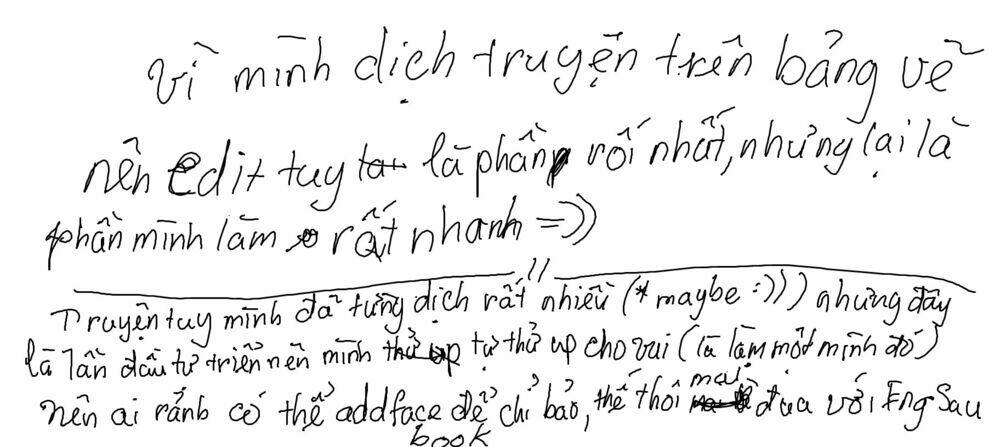 vì mình dịch truyện trên bảng vẽ
nên edit tuy là phần rối nhất, nhưng lại là
phần mình làm rất nhanh =))
Truyện tuy mình đã từng dịch rất nhiều (*maybe :))) nhưng đây
là lần đầu tự triển nên mình tự thử up cho vui (là làm một mình đó)
nên ai rảnh có thể add facebook để chỉ bảo, thế thôi mai đua với Eng Sau